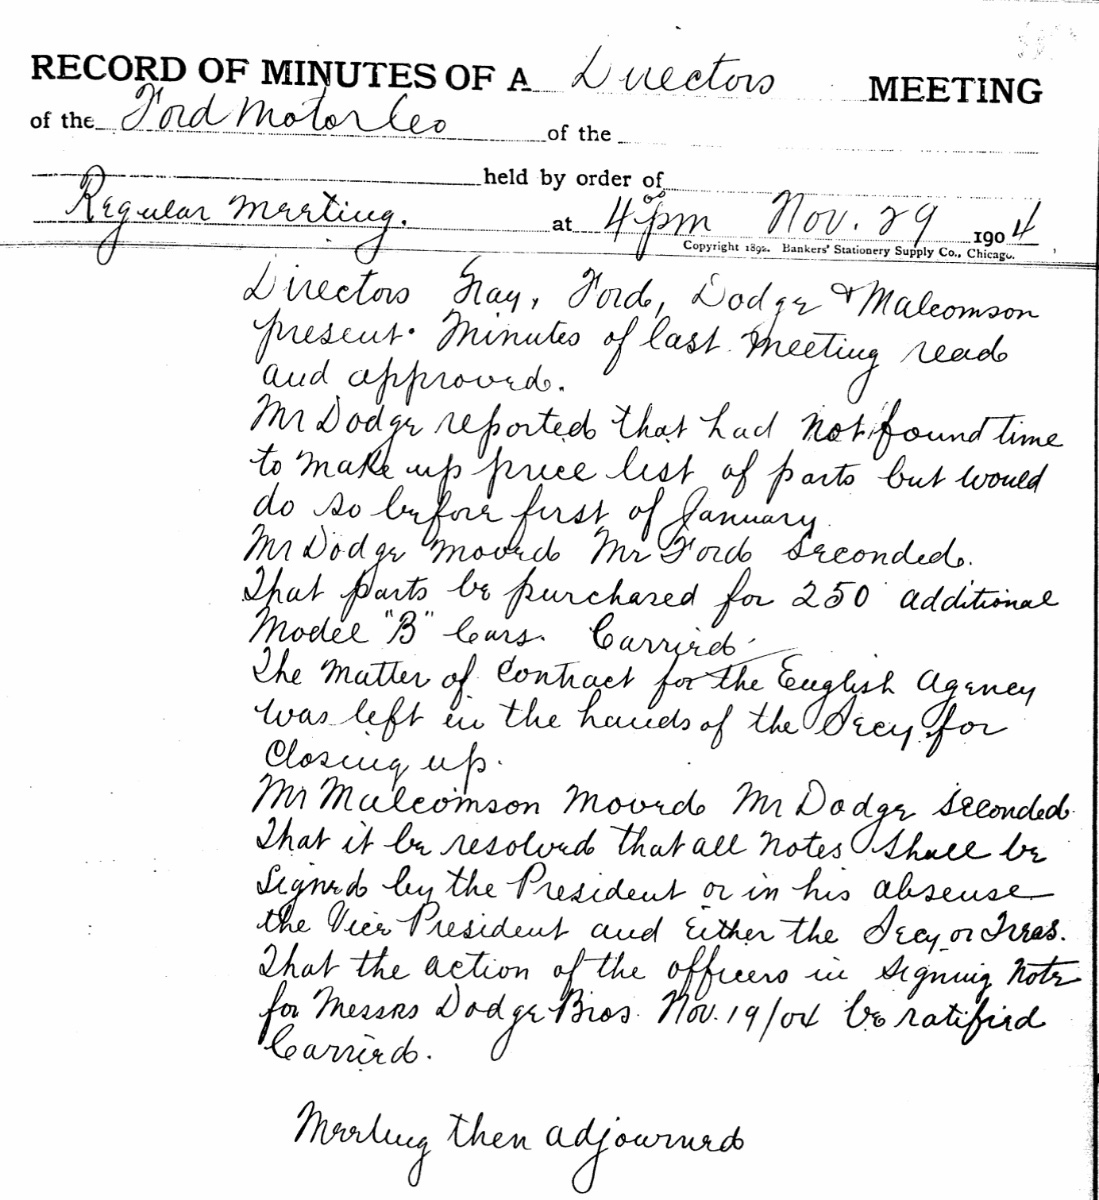 RECORD OF MINUTES OF A Directors MEETING
of the Ford Motor Co of the
held by order of
Regular Meeting. at 4 pm Nov. 29 1904
Copyright 1892. Bankers' Stationery Supply Co., Chicago.
Directors Gray, Ford, Dodge & Malcomson
present. Minutes of last meeting read
and approved.
Mr Dodge reported that had not found time
to make up price list of parts but would
do so before first of January.
Mr Dodge moved Mr Ford seconded.
That parts be purchased for 250 additional
Model "B" Cars. Carried.
The matter of Contract for the English Agency
was left in the hands of the Secy for
Closing up.
Mr Malcomson moved Mr Dodge seconded
That it be resolved that all notes shall be
signed by the President or in his absense
the Vice President and either the Secy or Treas.
That the action of the officers in signing Note
for Messrs Dodge Bros. Nov. 19/04 be ratified
Carried.
Meeting then adjourned